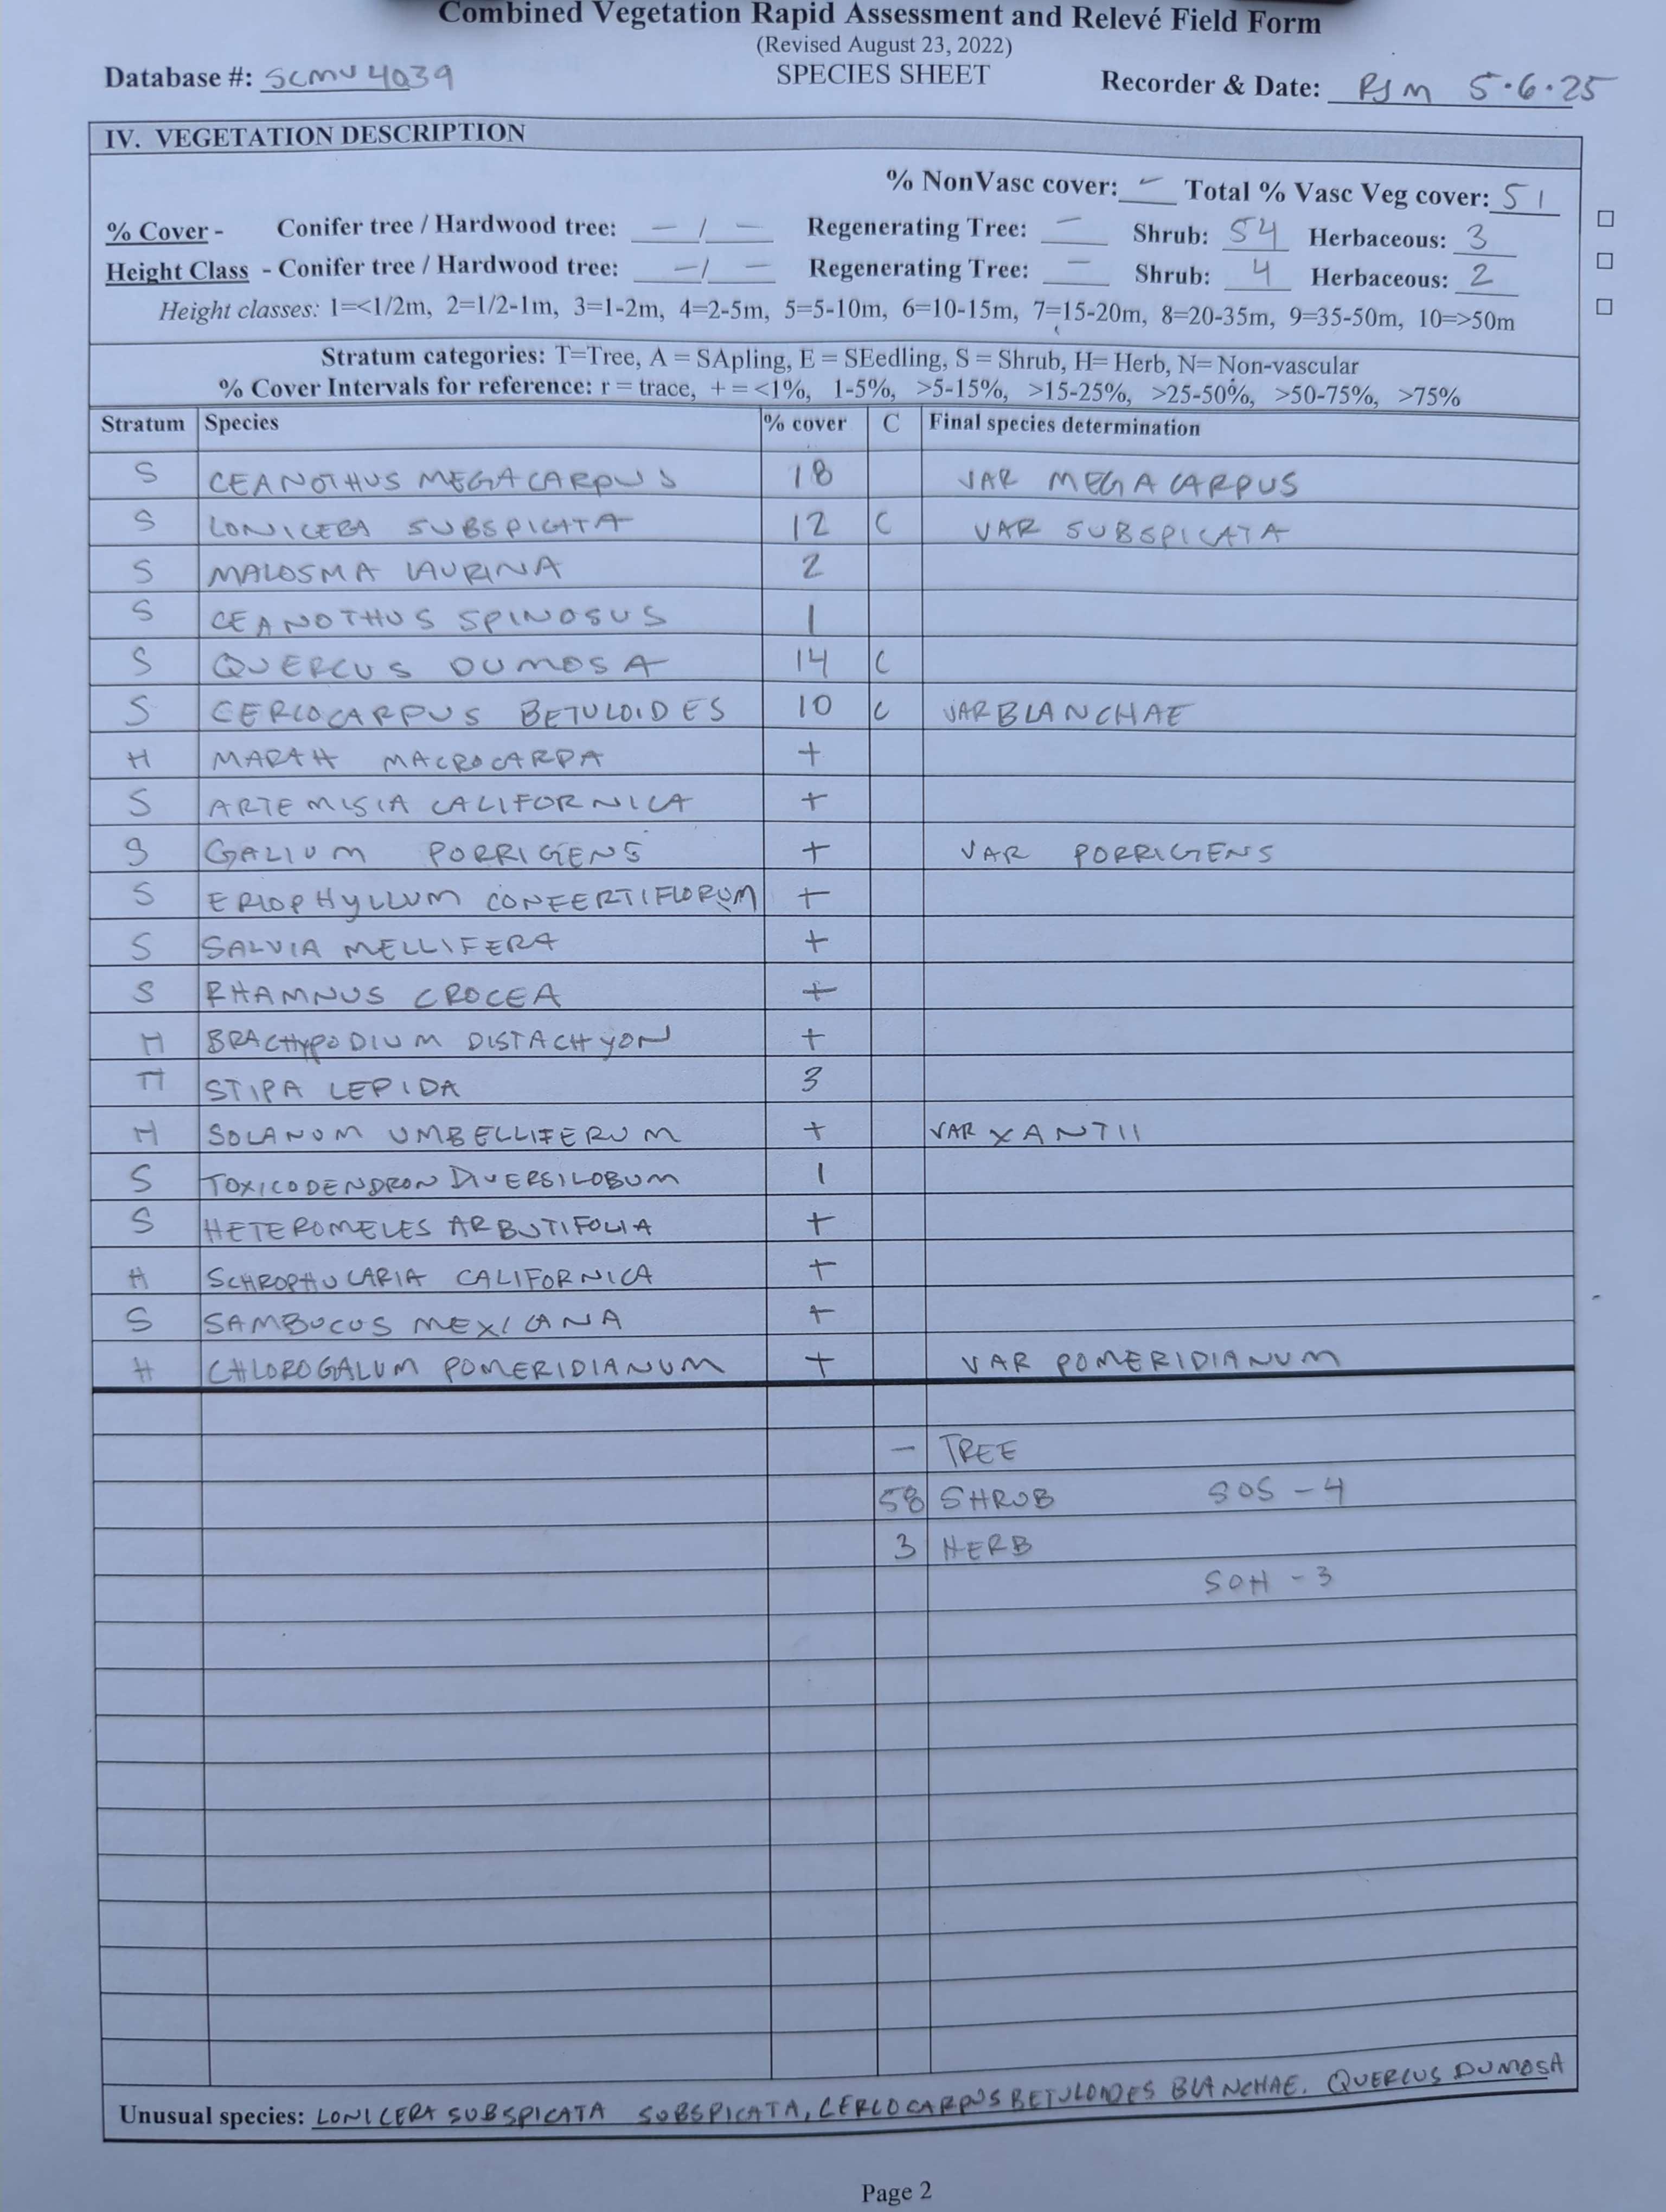 Combined Vegetation Rapid Assessment and Relevé Field Form
(Revised August 23, 2022)
Database #: SCMU4039 SPECIES SHEET Recorder & Date: PJM 5·6·25
IV. VEGETATION DESCRIPTION
% NonVasc cover: — Total % Vasc Veg cover: 51
% Cover - Conifer tree / Hardwood tree: — / — Regenerating Tree: — Shrub: 54 Herbaceous: 3
Height Class - Conifer tree / Hardwood tree: — / — Regenerating Tree: — Shrub: 4 Herbaceous: 2
Height classes: 1=<1/2m, 2=1/2-1m, 3=1-2m, 4=2-5m, 5=5-10m, 6=10-15m, 7=15-20m, 8=20-35m, 9=35-50m, 10=>50m
Stratum categories: T=Tree, A = SApling, E = SEedling, S = Shrub, H= Herb, N= Non-vascular
% Cover Intervals for reference: r = trace, + = <1%, 1-5%, >5-15%, >15-25%, >25-50%, >50-75%, >75%
Stratum Species % cover C Final species determination
S CEANOTHUS MEGACARPUS 18 VAR MEGACARPUS
S LONICERA SUBSPICATA 12 C VAR SUBSPICATA
S MALOSMA LAURINA 2
S CEANOTHUS SPINOSUS 1
S QUERCUS DUMOSA 14 C
S CERCOCARPUS BETULOIDES 10 C VAR BLANCHAE
H MARAH MACROCARPA +
S ARTEMISIA CALIFORNICA +
S GALIUM PORRIGENS + VAR PORRIGENS
S ERIOPHYLLUM CONFERTIFLORUM +
S SALVIA MELLIFERA +
S RHAMNUS CROCEA +
H BRACHYPODIUM DISTACHYON +
H STIPA LEPIDA 3
H SOLANUM UMBELLIFERUM + VAR XANTII
S TOXICODENDRON DIVERSILOBUM 1
S HETEROMELES ARBUTIFOLIA +
H SCHROPHULARIA CALIFORNICA +
S SAMBUCUS MEXICANA +
H CHLOROGALUM POMERIDIANUM + VAR POMERIDIANUM
— TREE
58 SHRUB SOS - 4
3 HERB
SOH - 3
Unusual species: LONICERA SUBSPICATA SUBSPICATA, CERCOCARPUS BETULOIDES BLANCHAE. QUERCUS DUMOSA
Page 2